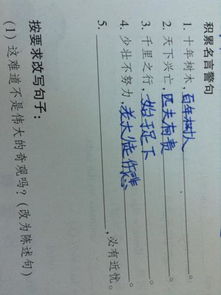 积累名言警句
1. 十年树木，百年树人。
2. 天下兴亡，匹夫有责。
3. 千里之行，始于足下。
4. 少壮不努力，老大徒伤悲。
5. ，必有近忧。
按要求改写句子：
（1）这难道不是伟大的奇观吗？（改为陈述句）